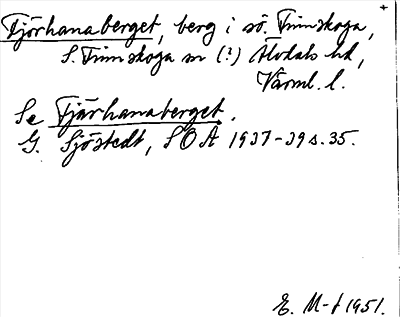 Tjörhanaberget, berg i sö. Finnskoga,
S. Finnskoga sn (?) Älvdals hd,
Värml. l.
Se Tjärhanaberget.
G. Sjöstedt, SOÅ 1937-39 s. 35.
E. M-t 1951.